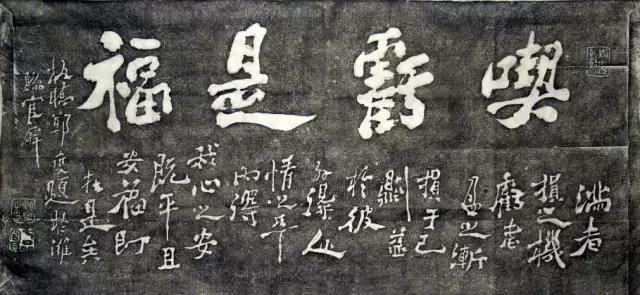 喫虧是福
滿者
損之機
虧者
盈之漸
損于己
則益
於彼
外得人
情之平
內得
我心之安
既平且
安福即
在是矣
板橋鄭燮題於濰
縣官